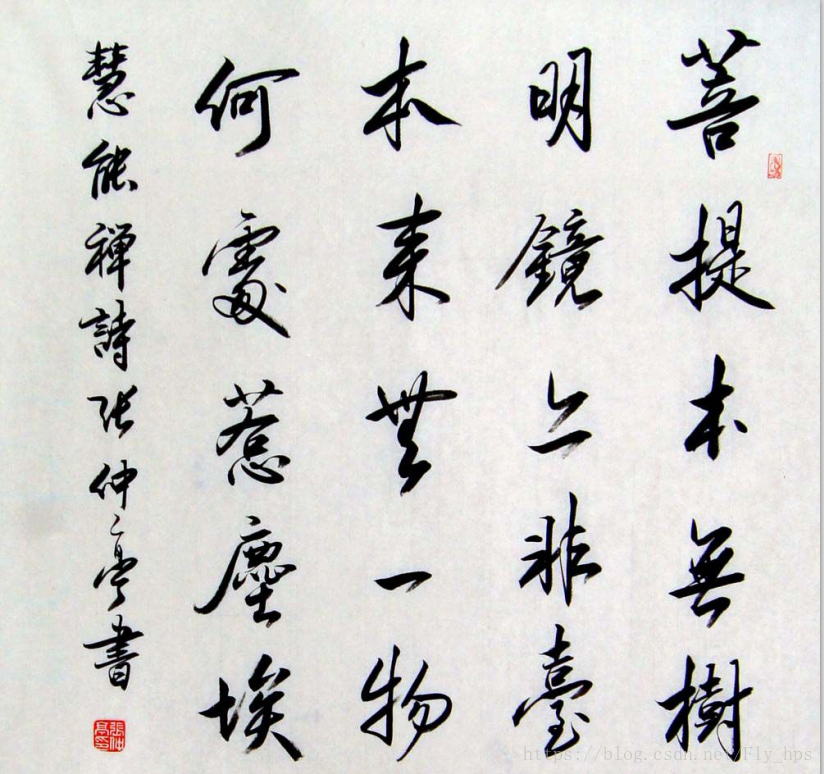 菩提本無樹
明鏡亦非臺
本来無一物
何處惹塵埃
慧能禪詩张仲亭書
張仲亭印
https://blog.csdn.net/Fly_hps